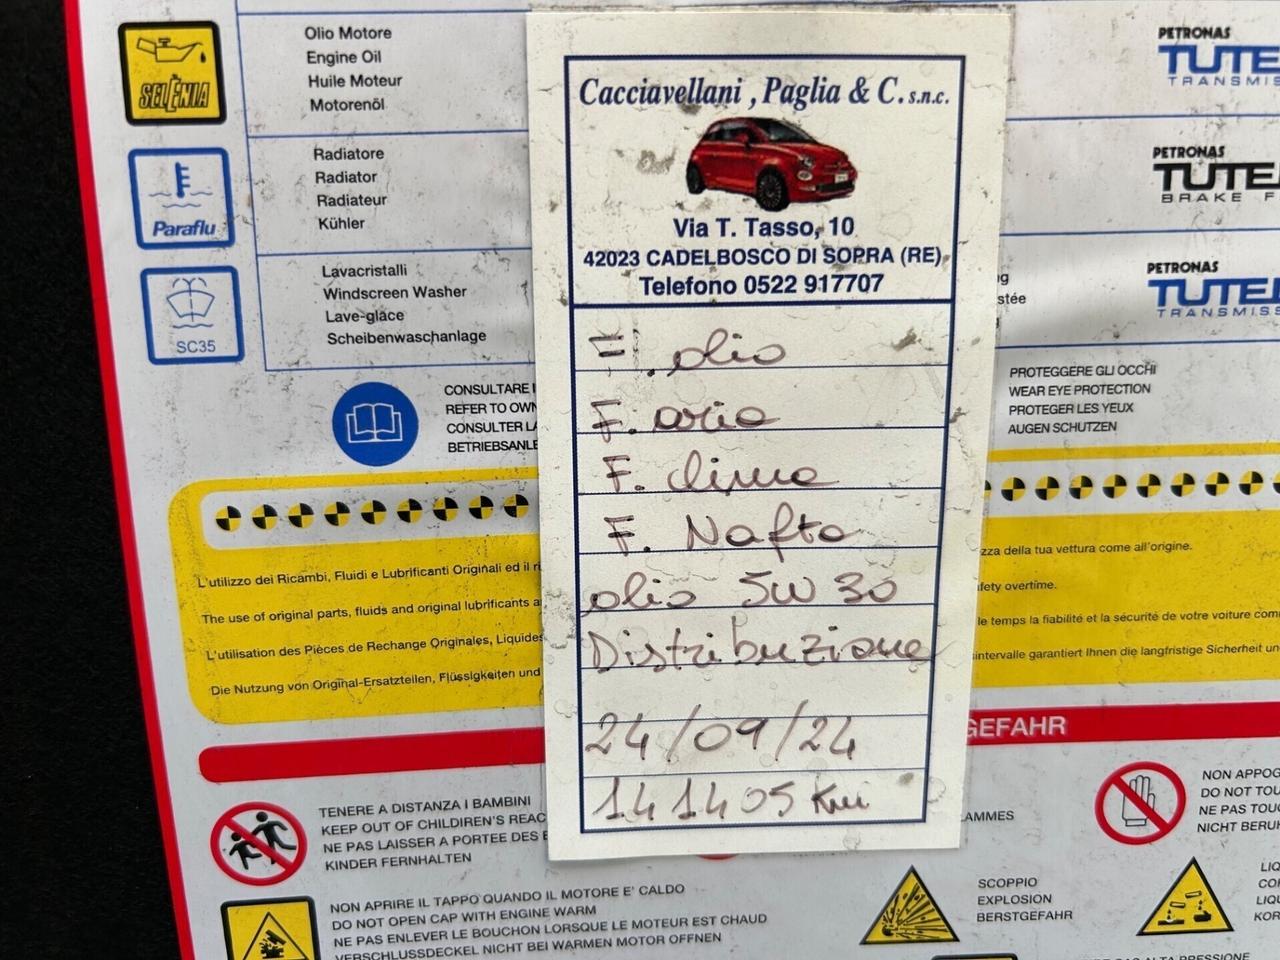 SELÈNIA
Olio Motore
Engine Oil
Huile Moteur
Motorenöl
Paraflu
Radiatore
Radiator
Radiateur
Kühler
SC35
Lavacristalli
Windscreen Washer
Lave-glace
Scheibenwaschanlage
CONSULTARE
REFER TO
CONSULTER
Cacciavellani, Paglia & C. s.n.c.
Via T. Tasso, 10
42023 CADELBOSCO DI SOPRA (RE)
Telefono 0522 917707
F. olio
F. aria
F. clima
F. Nafta
olio 5W30
Distribuzione
24/09/24
141405 Km
PETRONAS
TUTE
TRANSMIS
PETRONAS
TUTE
BRAKE F
PETRONAS
TUTE
TRANSMIS
PROTEGGERE GLI OCCHI
WEAR EYE PROTECTION
PROTEGER LES YEUX
AUGEN SCHUTZEN
L'utilizzo dei Ricambi, Fluidi e Lubrificanti Originali ed il
The use of original parts, fluids and original lubrificants
L'utilisation des Pièces de Rechange Originales, Liquides
Die Nutzung von Original-Ersatzteilen, Flüssigkeiten und
zza della tua vettura come all'origine.
fety overtime.
le temps la fiabilité et la sécurité de votre voiture
intervalle garantiert Ihnen die langfristige Sicherheit
GEFAHR
TENERE A DISTANZA I BAMBINI
KEEP OUT OF CHILDREN'S REAC
NE PAS LAISSER A PORTEE DES
KINDER FERNHALTEN
AMMES
NON APPOG
DO NOT TOU
NE PAS TOUC
NICHT BERU
NON APRIRE IL TAPPO QUANDO IL MOTORE E' CALDO
DO NOT OPEN CAP WITH ENGINE WARM
NE PAS ENLEVER LE BOUCHON LORSQUE LE MOTEUR EST CHAUD
VERSCHLUSSDECKEL NICHT BEI WARMEN MOTOR OFFNEN
SCOPPIO
EXPLOSION
BERSTGEFAHR
LIQ
COR
LIQU
KOR